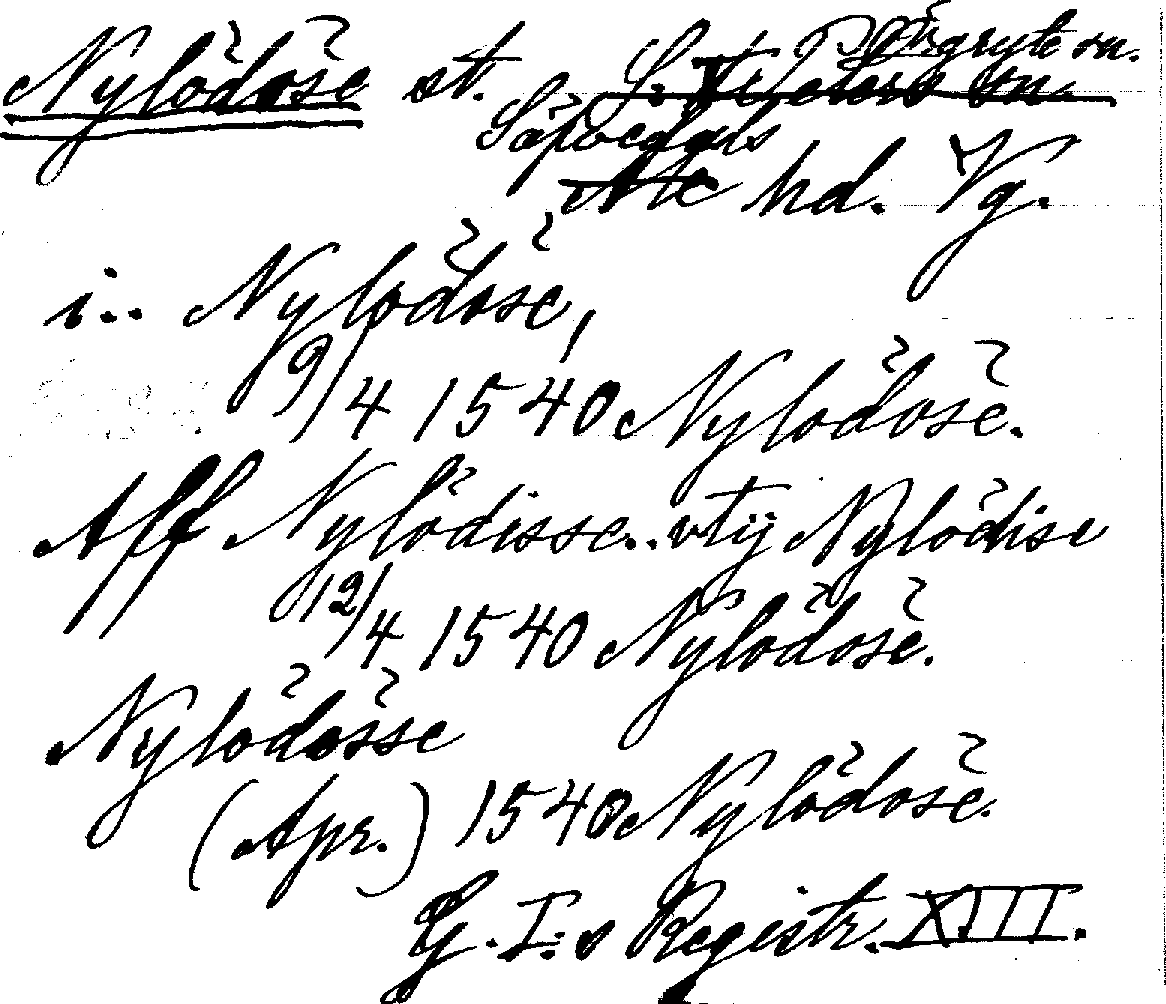 Nylödöse st. S:t Peders sn. Örgryte sn.
Sävedals
Ale hd. Vg.
i.. Nylödöse,
9/4 1540 Nylödöse.
Aff Nylödisse.. vtij Nylödise
12/4 1540 Nylödöse.
Nylödösse
(Apr.) 1540 Nylödöse.
G. I:s Registr. XIII.